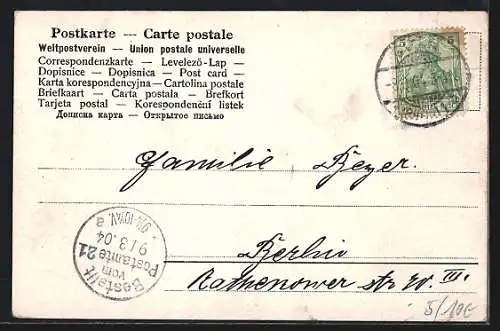 Postkarte — Carte postale
Weltpostverein — Union postale universelle
Correspondenzkarte — Levelező-Lap —
Dopisnice — Dopisnica — Post card —
Karta korespondencyjna — Cartolina postale
Briefkaart — Carta postala — Brefkort
Tarjeta postal — Korespondenční listek
Дописна карта — Открытое письмо
5 5
Familie Beyer.
Berlin
Rathenower str. III.
Bestellt
vom
Postamte 21
9/3.04
a
5/10€